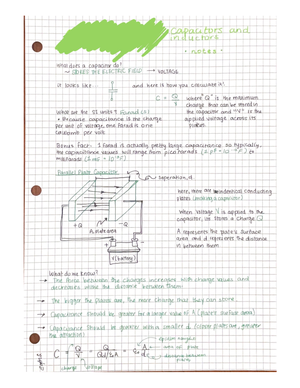 Capacitors and
inductors
• notes •
What does a capacitor do?
→ STORES THE ELECTRIC FIELD → VOLTAGE
It looks like and here's how you calculate it!
C = Q/V where "Q" is the maximum
charge that can be stored in
the capacitor and "V" is the
applied voltage across its
plates.
What are the SI units? Farad (F)
• Because capacitance is the charge
per unit of voltage, one farad is one
coulomb per volt.
Bonus Fact: 1 Farad is actually pretty large capacitance, so typically,
the capacitance values will range from picofarads
Parallel Plate Capacitor
seperation, d
+Q
-Q
A, plate area
V (battery)
Here, there are two identical conducting
plates
When Voltage V is applied to the
capacitor, it stores a charge Q
A represents the plate's surface
area and d represents the distance
in between them
What do we know?
→ The force between the charges increases with charge values and
decreases with the distance between them
→ The bigger the plates are, the more charge that they can store.
→ Capacitance should be greater for a larger value of A (plate's surface area)
→ Capacitance should be greater with a smaller d (closer plates = greater
the attraction)
C = Q/V =
charge voltage